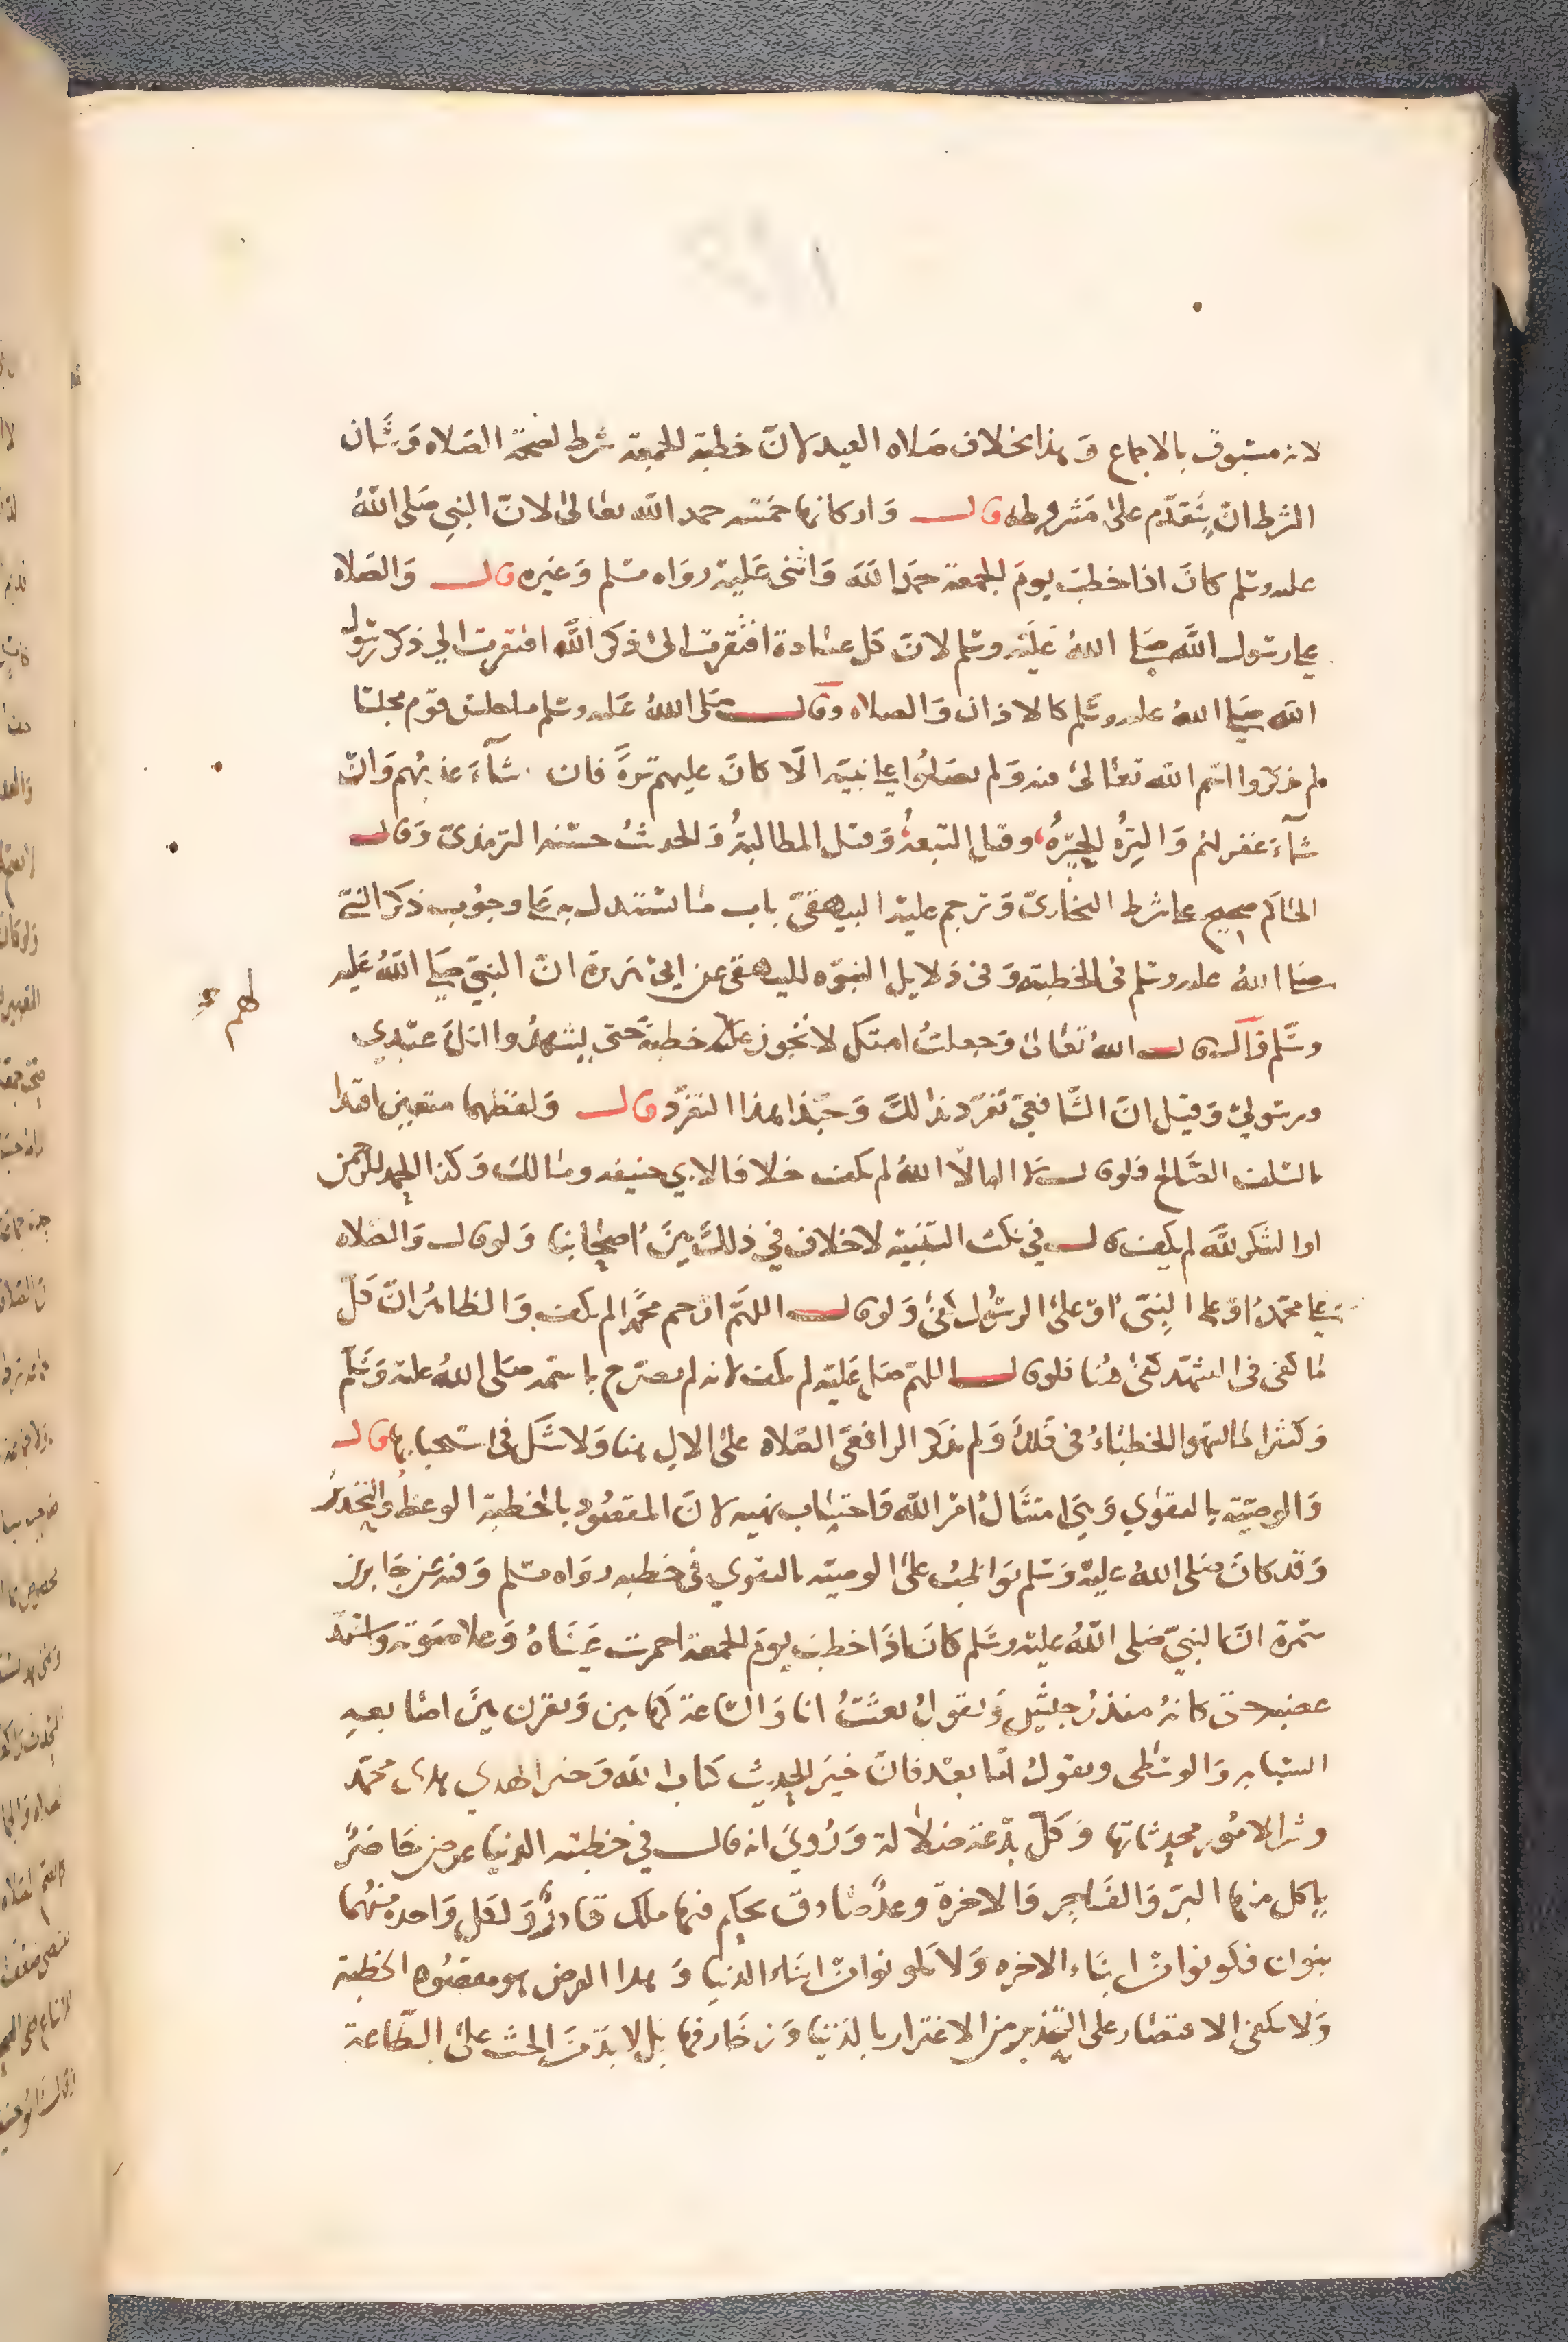 لانه مسبوق بالاجماع وَهذا بخلاف صَلاه العيد لانّ خطبة الجمعة شرط لصحّة الصَلاه وَشَان
الشرط انْ يَتقدّم على مَشروطه قال وَاركانها خمَسَه حمد الله تعالى لانّ النبي صَلى اللهُ
عليه وسلم كانَ اذا خطبَ يومَ الجمعة حمَدَ اللهَ وَاثنى عَليه روَاه مسلم وَغيره قال وَالصَلاه
على رسُول اللهِ صَلى اللهُ عَليْه وسَلم لانّ كل عبَادة افتقرت الى ذكَر اللّه افتقرت الي ذكر رسُول
الله صَلى اللهُ عليه وسَلم كالاذان وَالصلاه وقال صَلى اللهُ عَليه وسَلم ما جلس قوم مجلسًا
لم يذكروا اسْم الله تعَالى فيه وَلم يصَلوا على نبيّه الّا كانَ عليهم ترةً فان شآءَ عذبهُم وَانْ
شآءَ غفر لهُم وَالترةُ الحسرةُ وقيل التبعةُ وَقيل المطالبةُ وَالحديثُ حسّنه الترمذيّ وَقال
الحاكم صحيح على شرط البخاريّ وَترجم عليْه البيهقيّ باب مَا يسْتدل به عَلى وجوُب ذكر النبيّ
صَلى اللهُ عليه وسلم في الخطبة وَفي دَلايل النبوّه للبيهقي عن ابيْ هَريرة انّ النبيّ صَلى اللهُ عَليه
وسَلّم قالَ قال اللهُ تعَالى وَجعلتُ امتكَ لا تجُوز عليهم خطبةٌ حَتى يشهدُوا انكَ عبْدي
لهم
ورسُوليْ وَقيل انّ الشَافعيّ تفرّد بذالكَ وَحبّذا هذا التفرّد قال وَلفظهما متعيّن اقتدا
بالسَلف الصَالح فلو قال لا اله الّا اللهُ لم يكف خلافا لابي حنيفه ومَالك وَكذا الحمد للرحمن
او الشكر للّه لم يكف قال في نكت التنبيه لا خلاف في ذلكَ بينَ اصحَابنا وَلو قال وَالصلاه
على محمّدٍ اوْ على النبيّ اوْ على الرسُول كفى وَلو قال اللهَمّ ارحم محمّدًا لم يكف وَالظاهرُ انّ كلّ
مَا كفى في التشهّد كفى هُنا فلو قال اللهمّ صَل عَليه لم يكف لانه لم يصَرح باسْمه صَلى اللهُ عليه وسَلّم
وَكثيرا مَا يسْهوا الخطبَاءُ في ذلكَ وَلم يذكر الرافعيّ الصَلاه على الال هنا وَلا شكّ في استحبابها قال
وَالوصيّة بالتقوَي وَهي امتثَالُ امْر اللّه وَاجتناب نهيه لانّ المقصُود بالخطبة الوعظ وَالتحذير
وَقد كانَ صَلى اللهُ عليْه وَسَلم يوَاظبُ على الوصيّه بالتقوي في خطبه روَاه مسْلم وَفيه عن جَابر بن
سَمرة انّ النبيّ صَلى اللّهُ عليه وسَلم كانَ اذَا خطبَ يومَ الجمعة احمرت عَيْنَاهُ وَعلا صَوته وَاشتدّ
غضبه حتى كانهُ منذرُ جيْش وَيقولُ بعثْتُ انا وَالسَاعة كهاتين وَيقرن بيْنَ اصَابعه
السبَابه وَالوسْطى ويقولُ امّا بعْد فانّ خيرَ الحديث كتاب الله وَخير الهدي هدى محمّد
وشر الامُور محدثاتها وَكلّ بدْعة ضلَالة وَرُويَ انه قال في خطبته الدنيا عرض حَاضرٌ
ياكل منها البرّ وَالفَاجر وَالاخرةُ وعدٌ صَادق يحكم فيها ملك قَادرٌ وَلكل وَاحدة منهُما
بنون فكونوا منْ ابنَاء الاخره وَلا تكونوا منْ ابنَاء الدنيا وَهذا العرض هو مقصُود الخطبة
وَلا يكفي الاقتصَار على التحْذير من الاغترار بالدنيَا وَزخَارفها بَل لا بدّ منَ الحثّ على الطَاعة